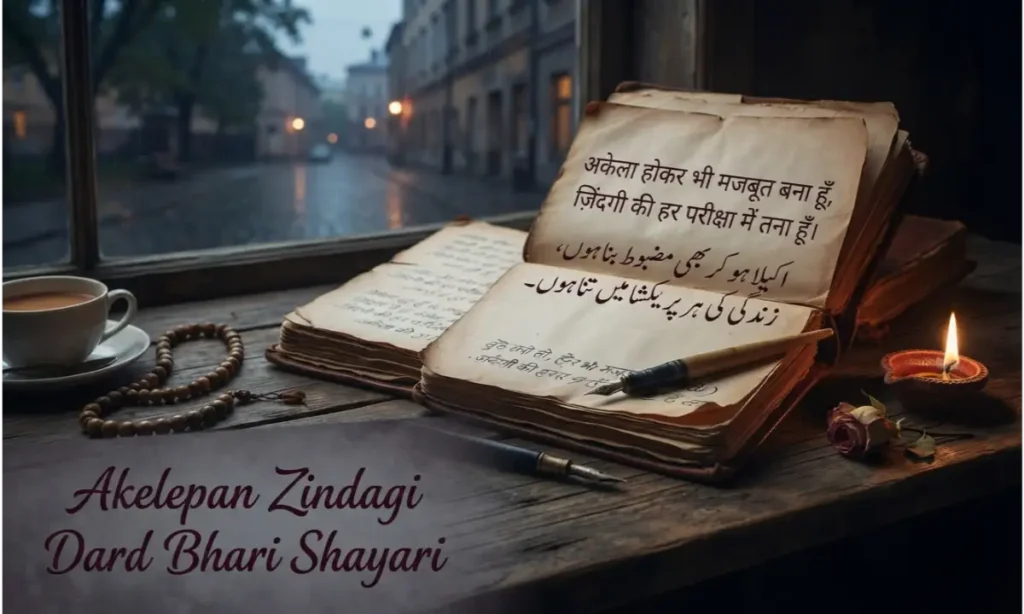 अकेला होकर भी मजबूत बना हूँ,
ज़िंदगी की हर परीक्षा में तना हूँ।
اکیلا ہو کر بھی مضبوط بنا ہوں،
زندگی کی ہر پریکشا میں تنا ہوں۔
Akelepan Zindagi
Dard Bhari Shayari